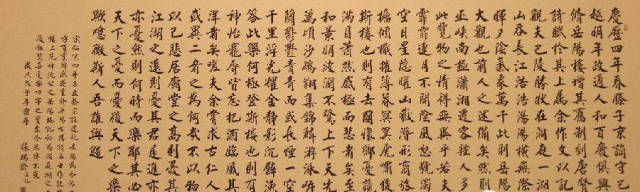 慶歷四年春滕子京謫守
越明年政通人和百廢俱興
脩岳陽樓增其舊制刻唐賢
詩賦於其上屬余作文以記
觀夫巴陵勝狀在洞庭一湖
山吞長江浩浩湯湯橫無際
暉夕陰氣象萬千此則岳陽
大觀也前人之述備矣然則
巫峽南極瀟湘遷客騷人
此覽物之情得無異乎若夫
霏霏連月不開陰風怒號濁
空日星隱曜山嶽潛形
傾檣摧薄暮冥冥虎嘯猿
斯樓也則有去國懷鄉憂讒
滿目蕭然感極而悲者矣
和景明波瀾不驚上下天
萬頃沙鷗翔集錦鱗游泳岸
蘭郁郁青青而或長煙一空
千里浮光耀金靜影沉璧漁
答此樂何極登斯樓也則有
神怡寵辱皆忘把酒臨風其
洋者矣嗟夫余嘗求古仁人
或異二者之為何哉不以物
以己悲居廟堂之高則憂其
江湖之遠則憂其君是進亦
亦憂然則何時而樂耶其必
天下之憂而憂後天下之樂
歟噫微斯人吾誰與歸